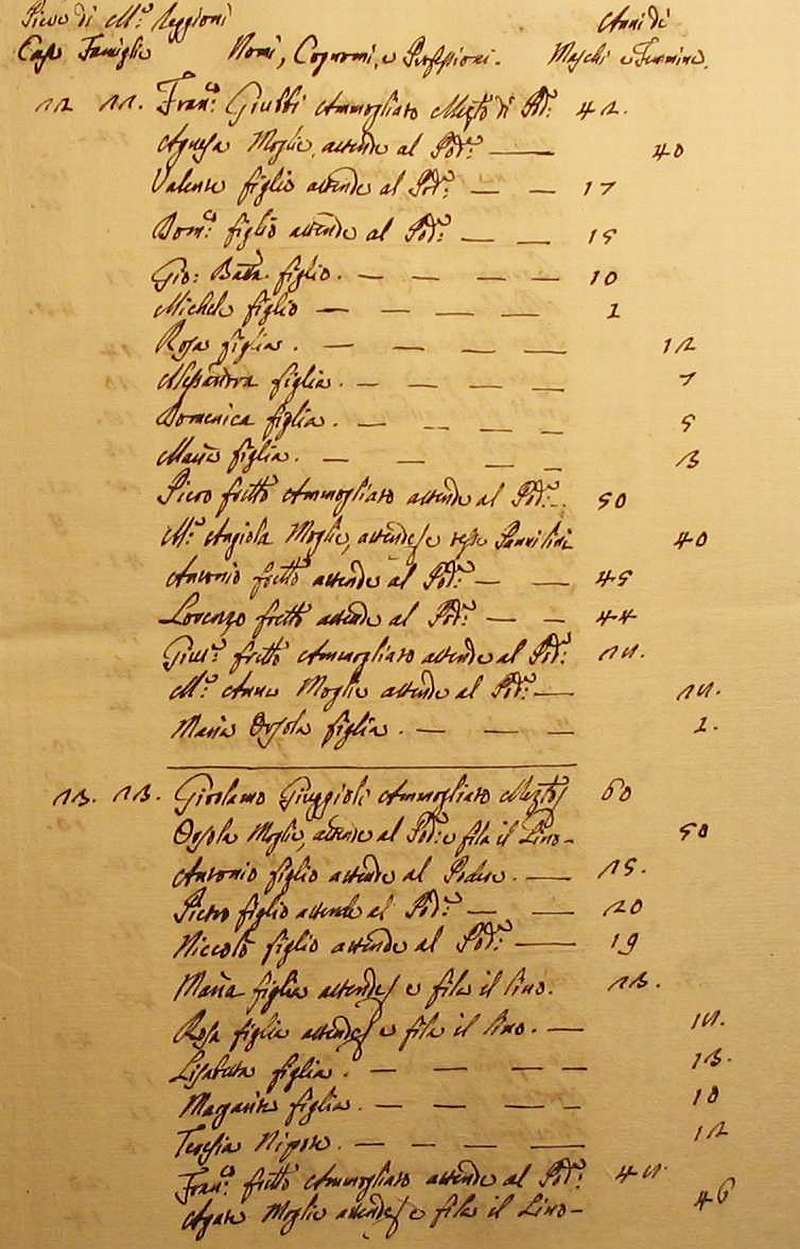 Pieve di M.ª Reggioni Anni di
Case Famiglie Nomi, Cognomi, e Professioni. Maschi e Femmine.
12 11. Fran.co Giusti Ammogliato Mezto di Pod.e 42.
Agnesa Moglie, attende al Pod.e 40
Valente figlio attende al Pod.e 17
Dom.co figlio attende al Pod.e 15
Gio: Batta figlio. 10
Michele figlio 1
Rosa figlia. 12
Alessandra figlia. 7
Domenica figlia. 5
Maria figlia. 3
Piero frello Ammogliato attende al Pod.e 50
M.ª Angiola Moglie, attende, e tesse Pannilini 40
Antonio frello attende al Pod.e 45
Lorenzo frello attende al Pod.e 44
Gius.e frello Ammogliato attende al Pod.e
M.ª Anna Moglie attende al Pod.e
Maria Orsola figlia. 1.
13. 13. Girolamo Giuggioli Ammogliato Mezto 60
Orsola Moglie, attende al Pod.e e fila il Lino 50
Antonio figlio attende al Podere. 25.
Pietro figlio attende al Pod.e 20
Niccolò figlio attende al Pod.e 19
Maria figlia attende, e fila il lino. 23.
Rosa figlia attende, e fila il lino.
Lisabetta figlia. 13.
Margarita figlia. 10
Teresia Nipote. 12
Fran.co frello Ammogliato attende al Pod.e
Agata Moglie attende, e fila il Lino 46